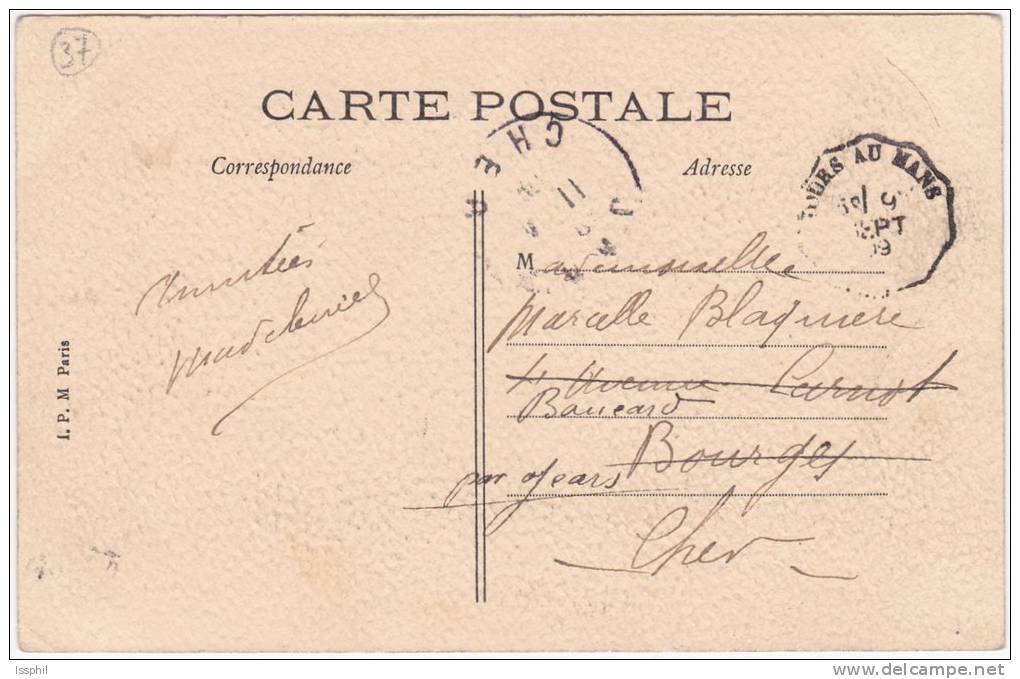 37
CARTE POSTALE
Correspondance
Adresse
TOURS AU MANS
9
SEPT
09
CHER
11
Amitiés
Madeleine
Mademoiselle
Marcelle Blaquiere
4 Avenue Carnot
Boucard
Bourges
par Jears
Cher
I. P. M Paris
Issphil
delcampe.net